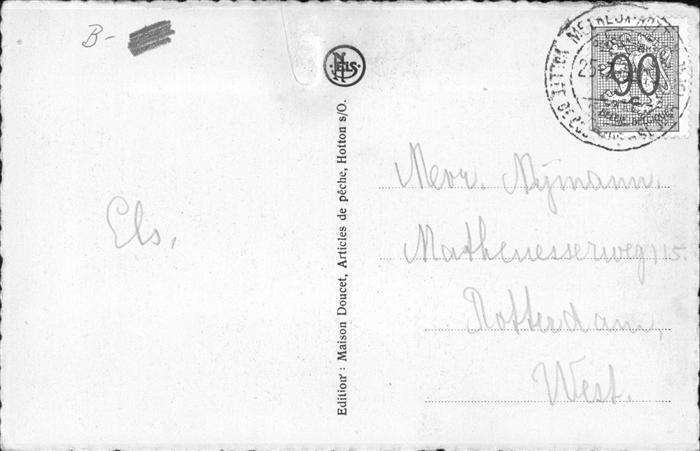 B-
NELS
90
Els,
Edition : Maison Doucet, Articles de pêche, Hotton s/O.
Mevr. Nijmann.
Mathenesserweg 115.
Rotterdam,
West.